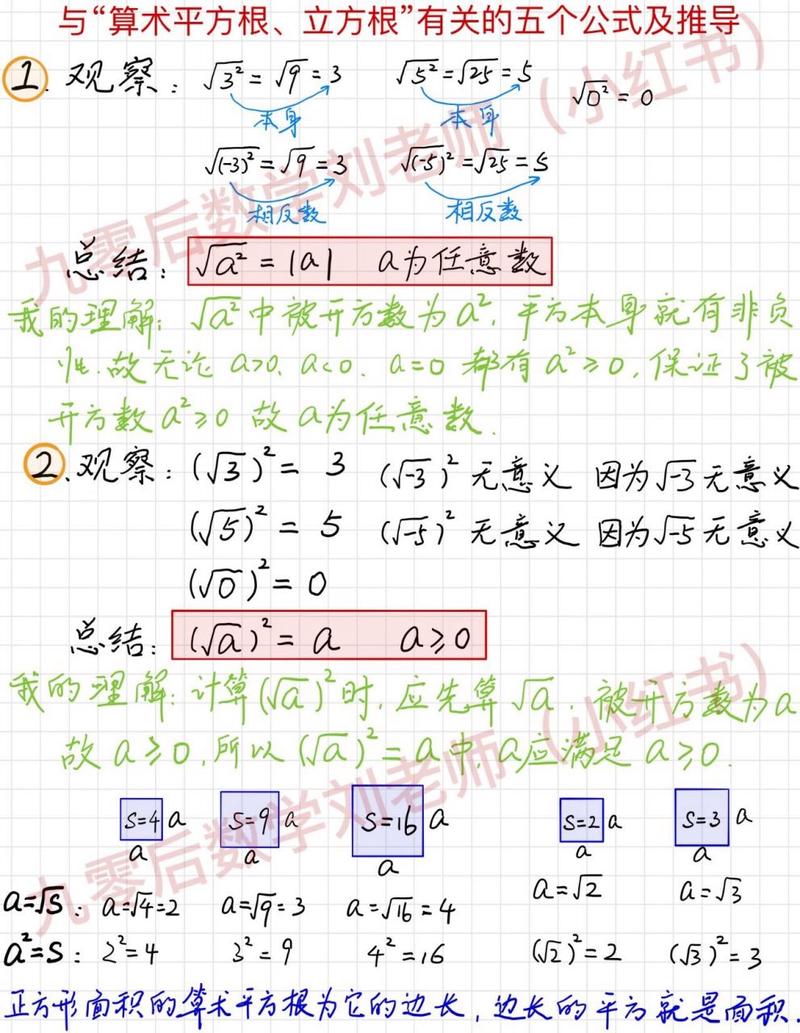 与“算术平方根、立方根”有关的五个公式及推导
1. 观察： √3² = √9 = 3 √5² = √25 = 5 √0² = 0
本身 本身
√(-3)² = √9 = 3 √(-5)² = √25 = 5
相反数 相反数
总结： √a² = |a| a为任意数
我的理解： √a² 中被开方数为a², 平方本身就有非负
性.故无论 a>0、a<0、a=0 都有 a²≥0, 保证了被
开方数 a²≥0 故 a为任意数.
2.观察： (√3)² = 3 (√-3)² 无意义 因为√-3无意义
(√5)² = 5 (√-5)² 无意义 因为√-5无意义
(√0)² = 0
总结： (√a)² = a a≥0
我的理解：计算(√a)²时, 应先算 √a. 被开方数为a
故 a≥0, 所以 (√a)² = a 中, a应满足 a≥0.
S=4 a S=9 a S=16 a S=2 a S=3 a
a a a a a
a=√S： a=√4=2 a=√9=3 a=√16=4 a=√2 a=√3
a²=S： 2²=4 3²=9 4²=16 (√2)²=2 (√3)²=3
正方形面积的算术平方根为它的边长, 边长的平方就是面积.
九零后数学刘老师（小红书）
九零后数学刘老师（小红书）